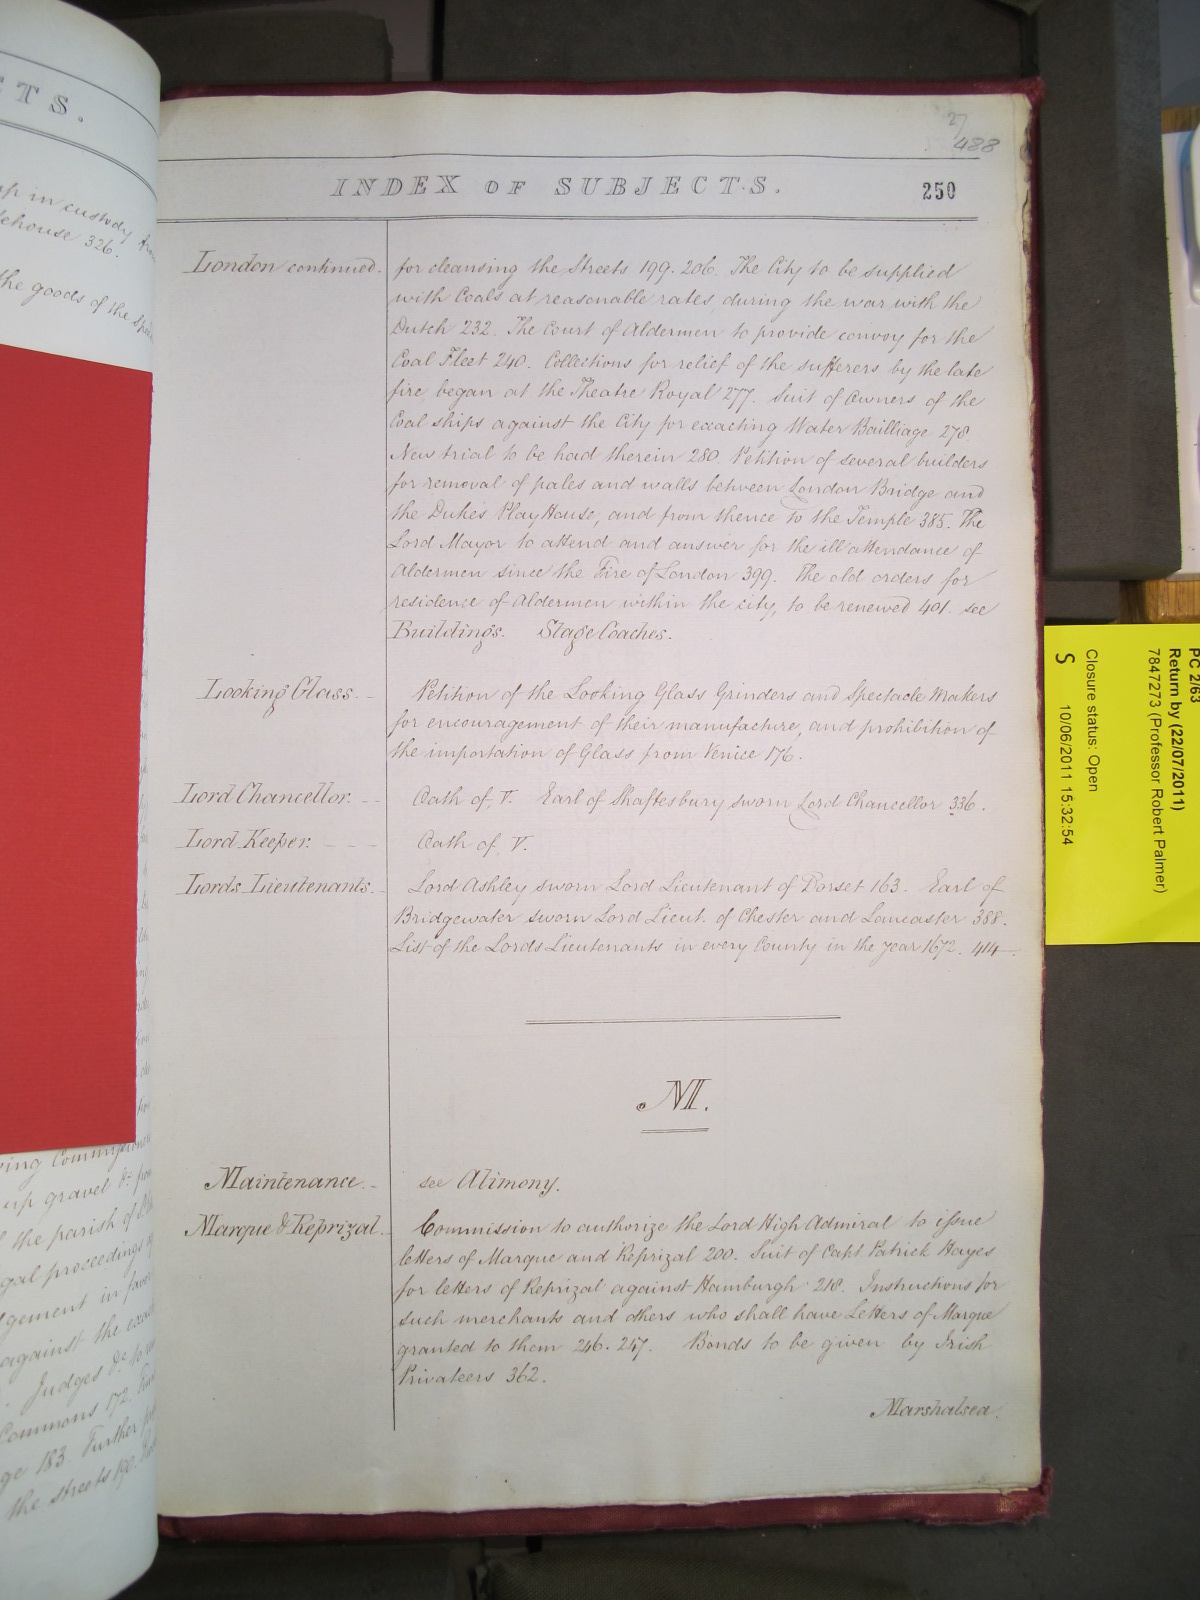 CTS.
in custody
house 326.
the goods of the
gravel &c
the parish of
gal proceedings
in
against the
Judges &c
Commons 172.
183. Further
the streets 190.
27
488
INDEX OF SUBJECTS.
250
London continued.
for cleansing the Streets 199. 206. The City to be supplied
with Coals at reasonable rates, during the war with the
Dutch 232. The Court of Aldermen to provide convoy for the
Coal Fleet 240. Collections for relief of the sufferers by the late
fire, began at the Theatre Royal 277. Suit of Owners of the
Coal ships against the City for exacting Water Bailliage 278.
New trial to be had therein 280. Petition of several builders
for removal of pales and walls between London Bridge and
the Duke's Play House, and from thence to the Temple 385. The
Lord Mayor to attend and answer for the ill attendance of
Aldermen since the Fire of London 399. The old orders for
residence of Aldermen within the city, to be renewed 401. see
Buildings. Stage Coaches.
Looking Glass.
Petition of the Looking Glass Grinders and Spectacle Makers
for encouragement of their manufacture, and prohibition of
the importation of Glass from Venice 176.
Lord Chancellor.
Oath of, V. Earl of Shaftesbury sworn Lord Chancellor 336.
Lord Keeper.
Oath of, V.
Lords Lieutenants.
Lord Ashley sworn Lord Lieutenant of Dorset 163. Earl of
Bridgewater sworn Lord Lieut. of Chester and Lancaster 388.
List of the Lords Lieutenants in every County in the year 1672. 414.
M.
Maintenance.
see Alimony.
Marque & Reprizal.
Commission to authorize the Lord High Admiral to issue
letters of Marque and Reprizal 200. Suit of Capt. Patrick Hayes
for letters of Reprizal against Hamburgh 218. Instructions for
such merchants and others who shall have Letters of Marque
granted to them 246. 247. Bonds to be given by Irish
Privateers 362.
Marshalsea.
PC 2/63
Return by (22/07/2011)
7847273 (Professor Robert Palmer)
Closure status: Open
S 10/06/2011 15:32:54